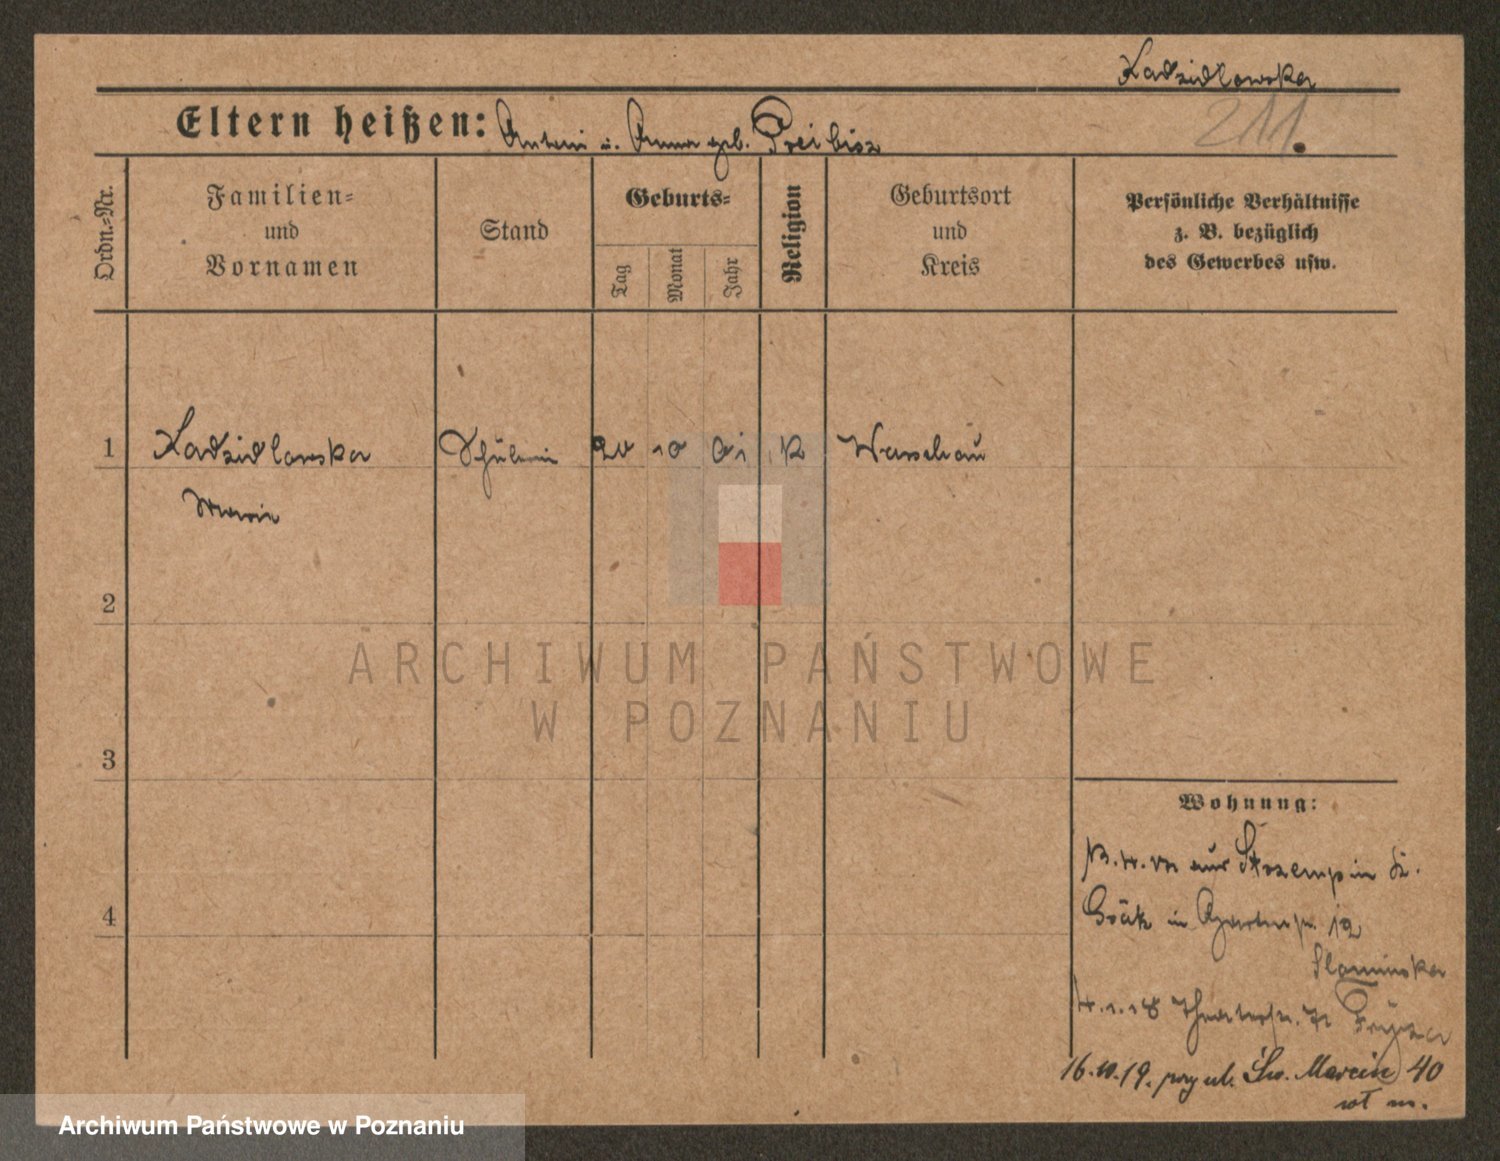 Kadzidlowska
211.
Eltern heißen: Antoni u. Anna geb. Preibisz
Ordn.=Nr.
Familien=
und
Vornamen
Stand
Geburts=
Tag
Monat
Jahr
Religion
Geburtsort
und
Kreis
Persönliche Verhältnisse
z. B. bezüglich
des Gewerbes usw.
1 Kadzidlowska Schülerin 20 10 01 K Warschau
Maria
2
3
4
ARCHIWUM PAŃSTWOWE
W POZNANIU
Wohnung:
aus Strzempin Kr.
Grätz in Gartenstr. 12
Slaminska
4.1.18 Theaterstr.
16.10.19. przy ul. Św. Marcin 40
Archiwum Państwowe w Poznaniu